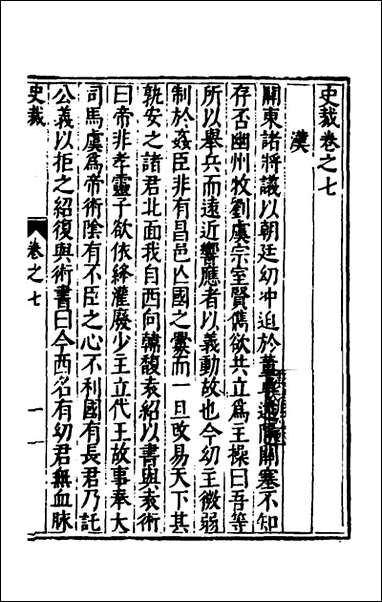 史裁卷之七
漢
關東諸將議以朝廷幼冲迫於董卓遠隔關塞不知
存否幽州牧劉虞宗室賢儁欲共立爲主操曰吾等
所以舉兵而遠近響應者以義動故也今幼主微弱
制於姦臣非有昌邑亾國之釁而一旦改易天下其
孰安之諸君北面我自西向韓馥袁紹以書與袁術
曰帝非孝靈子欲依絳灌廢少主立代王故事奉大
司馬虞爲帝術陰有不臣之心不利國有長君乃託
公義以拒之紹復與術書曰今西名有幼君無血脉
史裁
卷之七
一